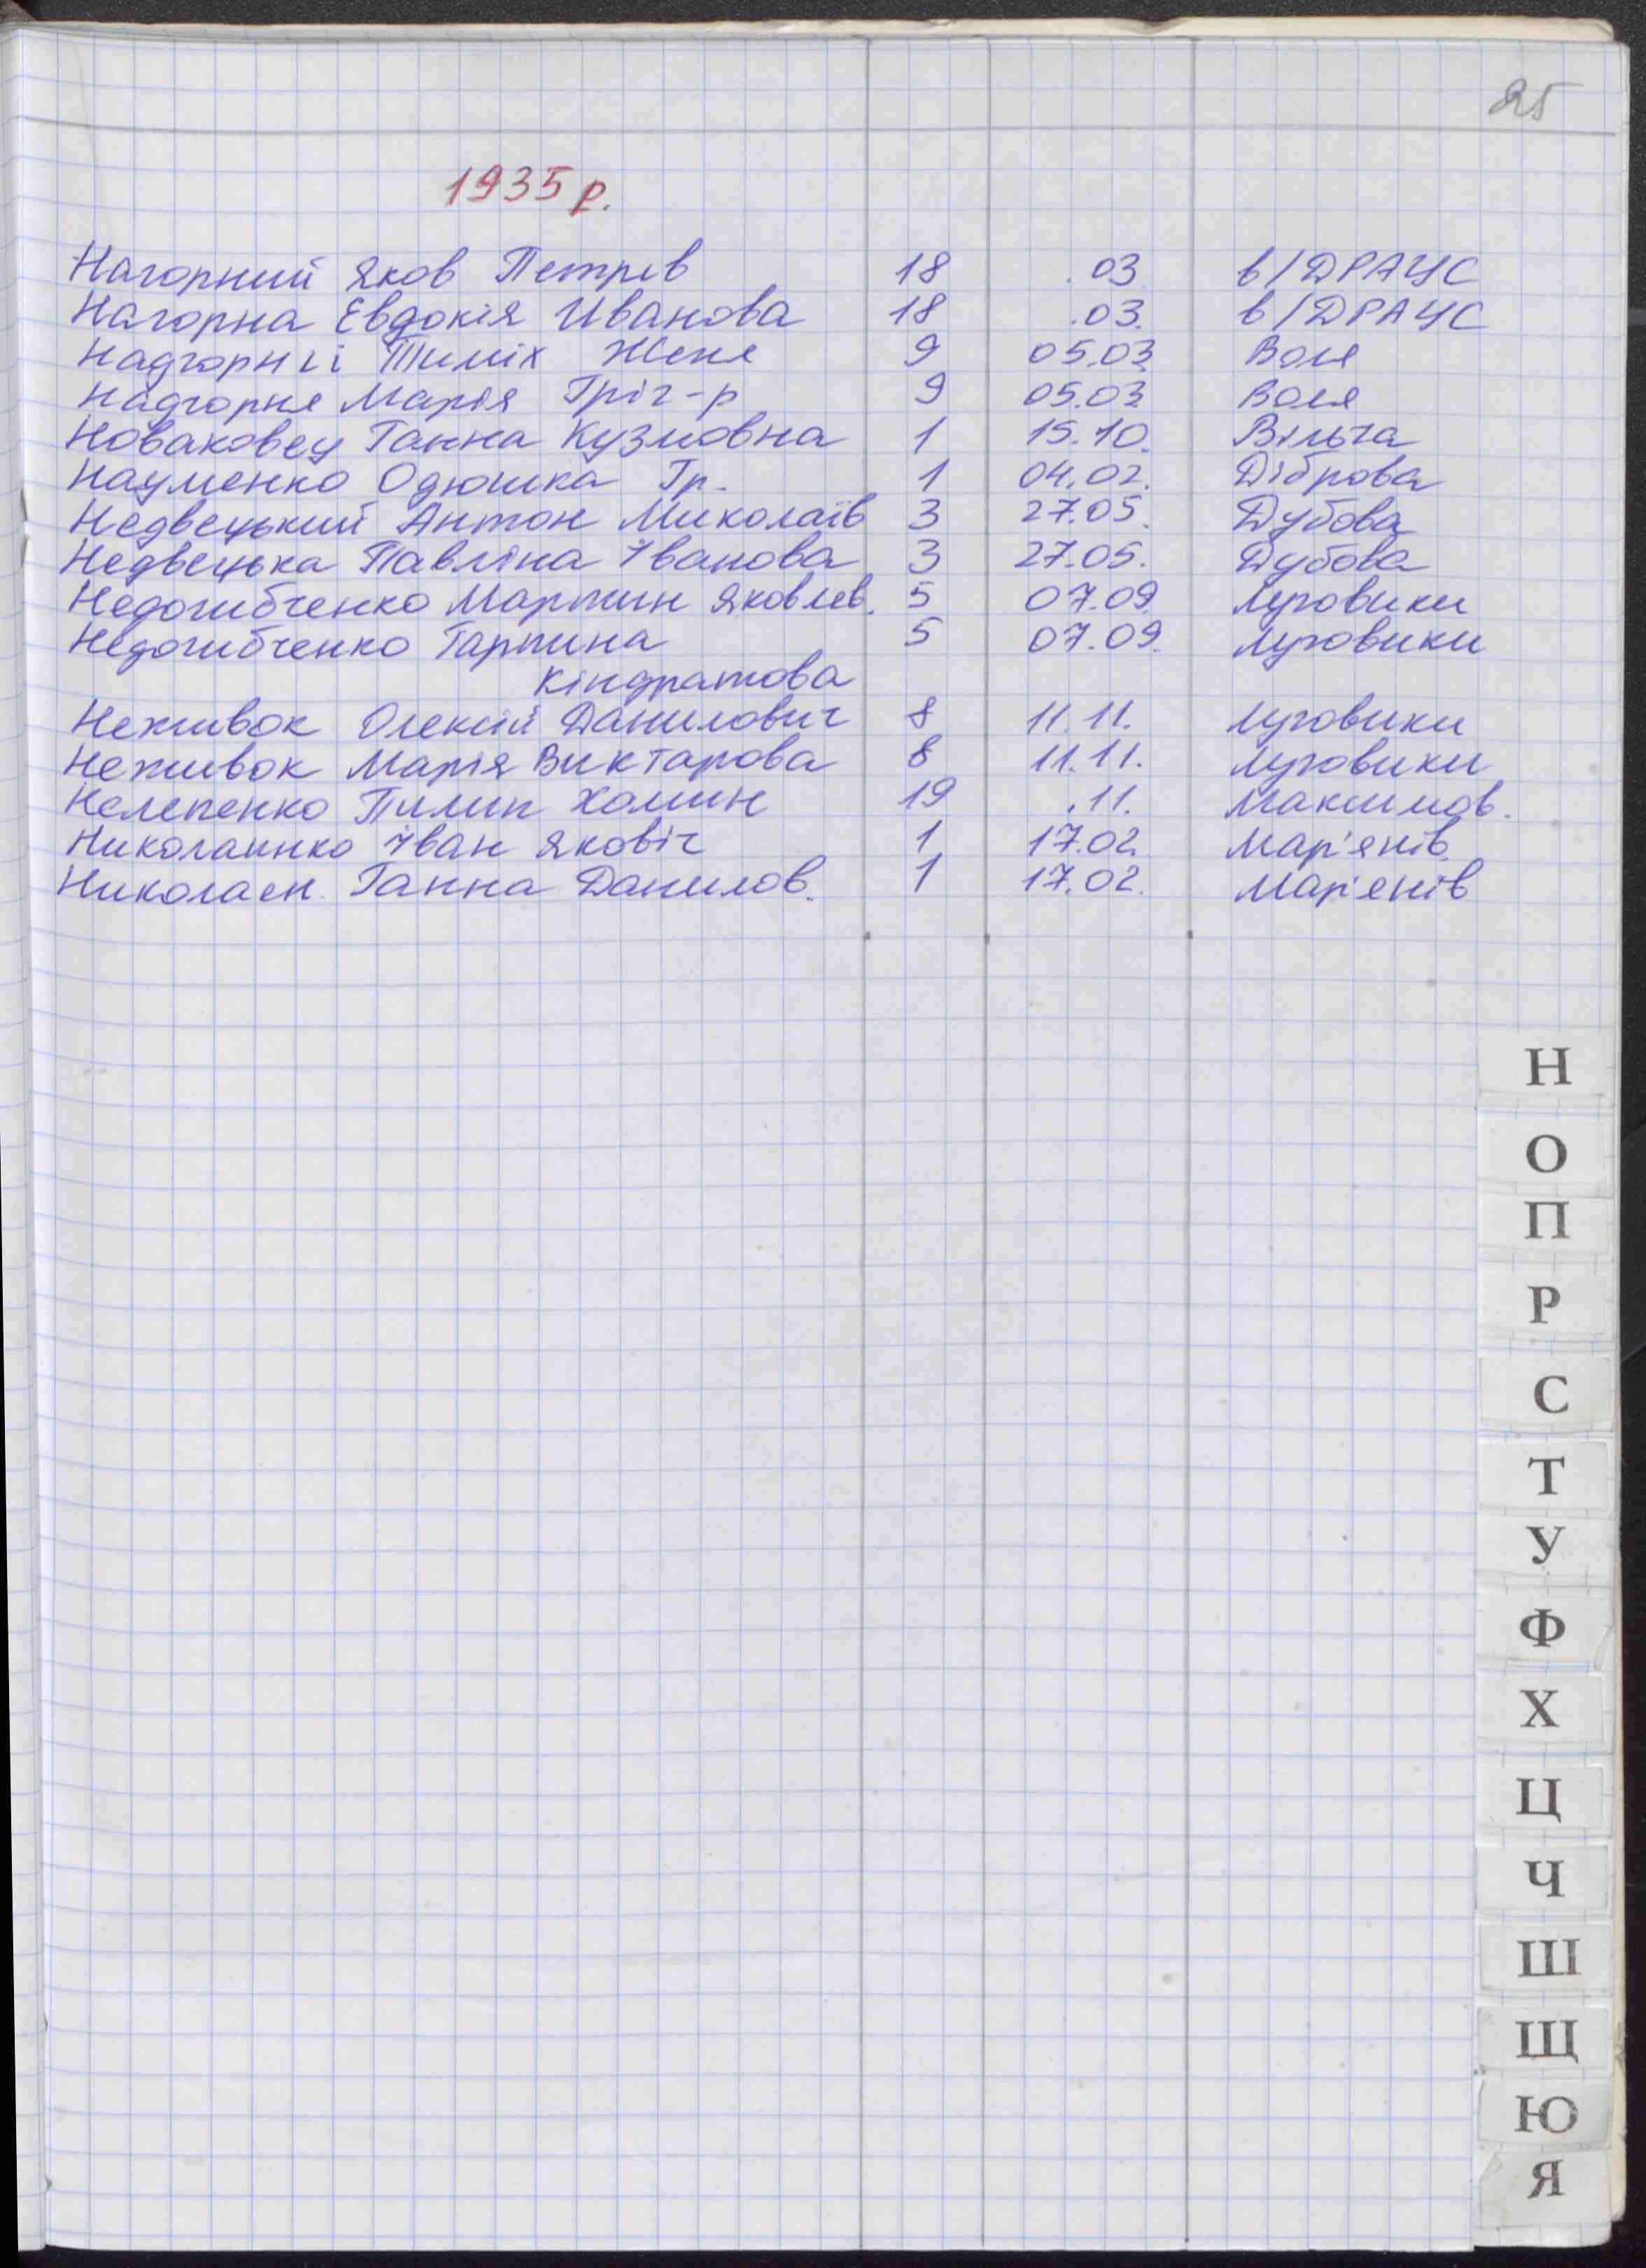 25
1935 р.
Нагорний Яков Петрів 18 .03 в/ДРАЦС
Нагорна Євдокія Иванова 18 .03. в/ДРАЦС
Надгорниі Тиміх Жене 9 05.03 Воля
Надгорне Марія Гріг-р 9 05.03 Воля
Новаковец Ганна Кузмовна 1 15.10. Вільча
Науменко Одюшка Гр. 1 04.02. Діброва
Недвецький Антон Миколаїв 3 27.05. Дубова
Недвецька Павліна Іванова 3 27.05. Дубова
Недогибченко Мартин Яковлев. 5 07.09 Луговики
Недогибченко Гарпина 5 07.09. Луговики
Кіндратова
Неживок Олексій Данилович 8 11.11. Луговики
Неживок Марія Виктарова 8 11.11. Луговики
Нелепенко Пилип Хомин 19 .11. Максимов.
Николаинко Іван Яковіч 1 17.02. Мар'янів
Николаен. Ганна Данилов. 1 17.02. Мар'енів
Н
О
П
Р
С
Т
У
Ф
Х
Ц
Ч
Ш
Щ
Ю
Я